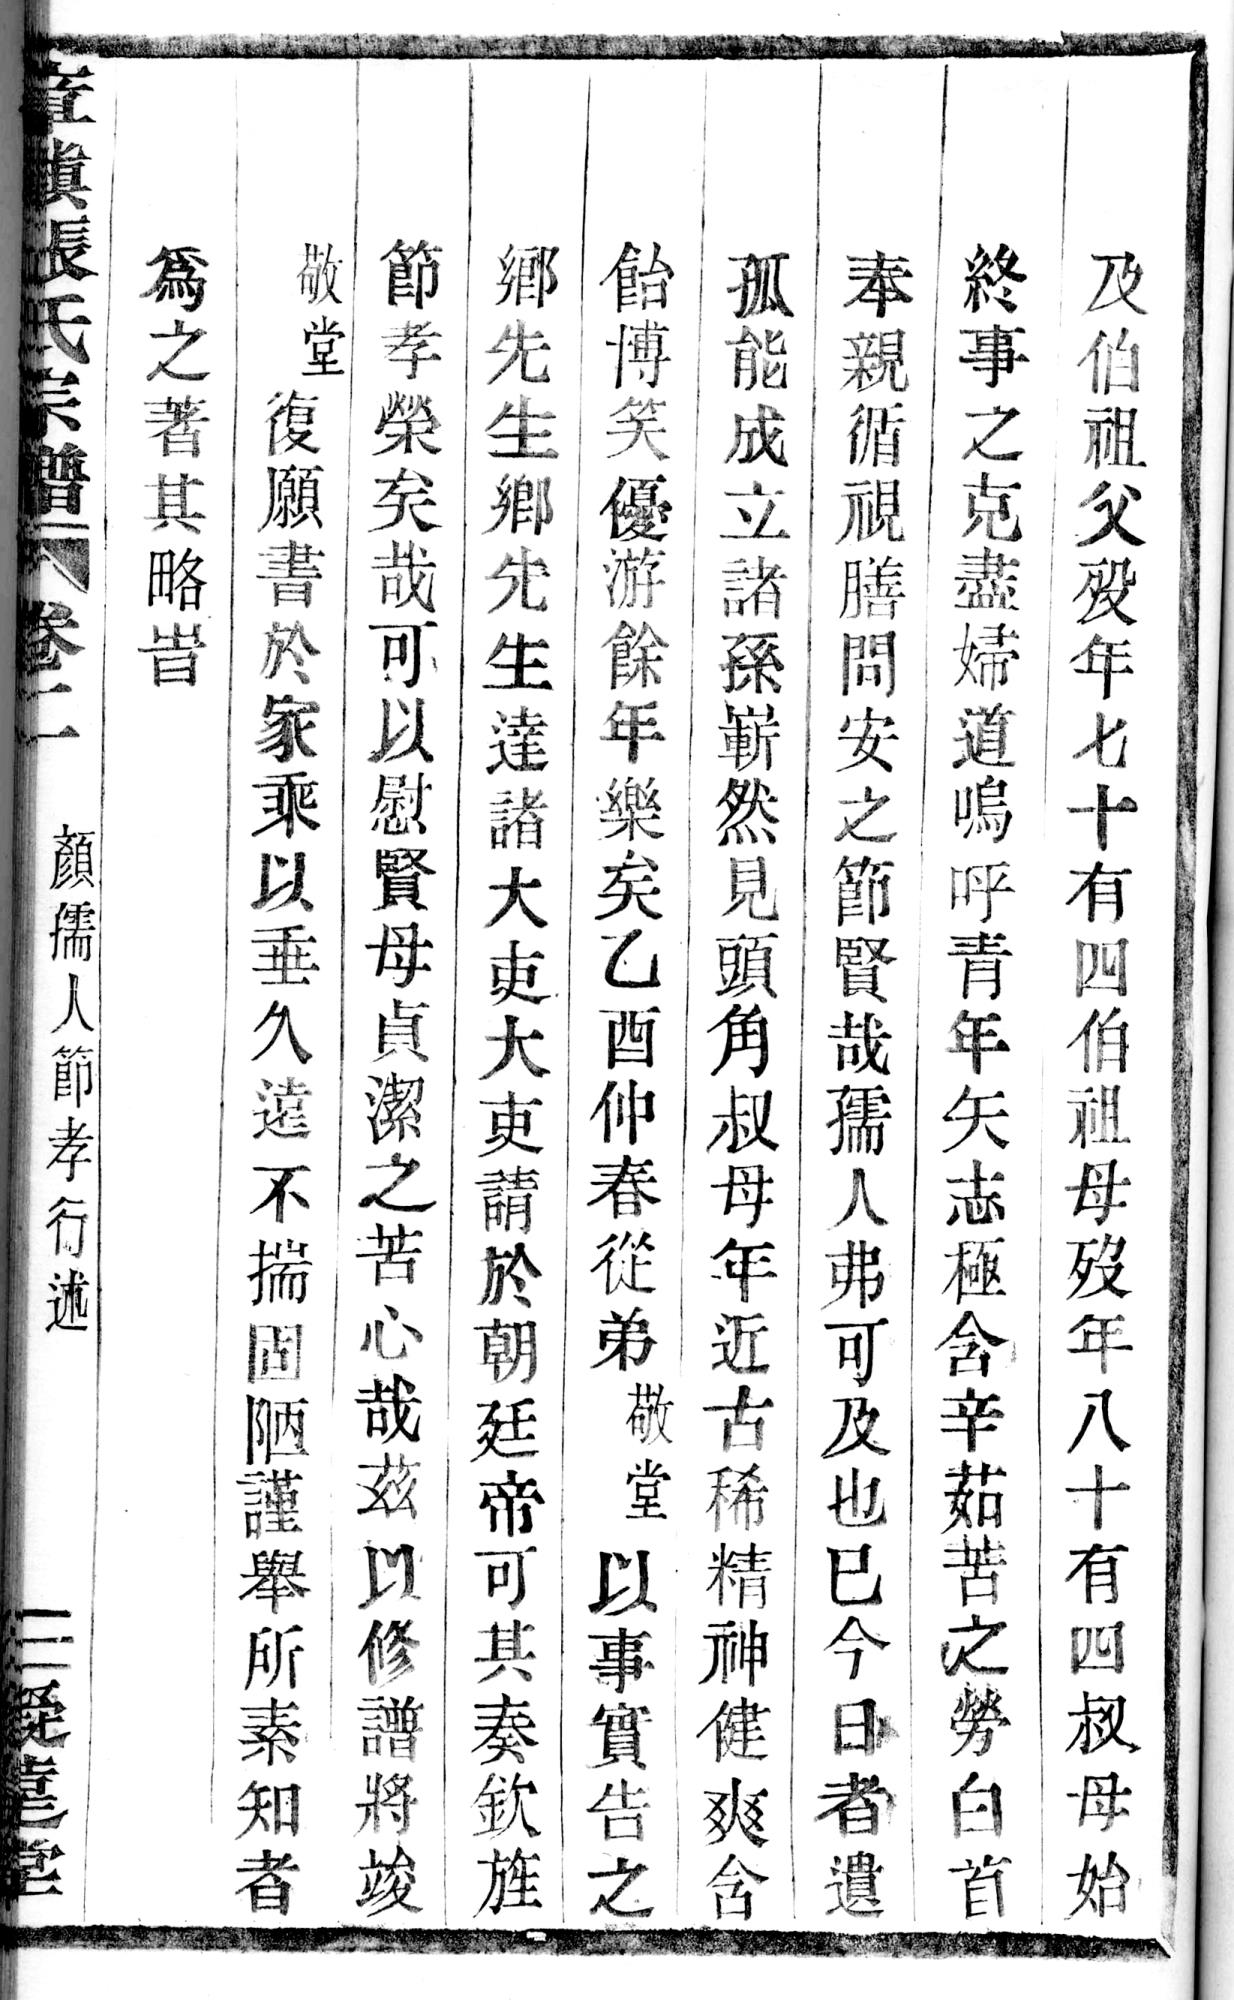 及伯祖父歿年七十有四伯祖母歿年八十有四叔母始
終事之克盡婦道嗚呼青年矢志極含辛茹苦之勞白首
奉親循視膳問安之節賢哉孺人弗可及也已今日者遺
孤能成立諸孫嶄然見頭角叔母年近古稀精神健爽含
飴博笑優游餘年樂矣乙酉仲春從弟敬堂以事實告之
鄉先生鄉先生達諸大吏大吏請於朝廷帝可其奏欽旌
節孝榮矣哉可以慰賢母貞潔之苦心哉茲以修譜將竣
敬堂復願書於家乘以垂久遠不揣固陋謹舉所素知者
為之著其略旹
張氏宗譜 卷二 顏孺人節孝行述 三 堂